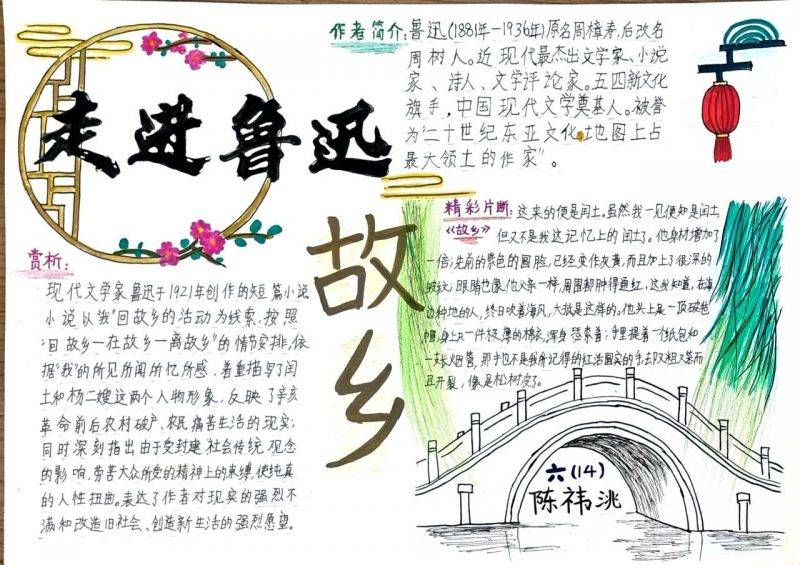 走进鲁迅
作者简介:鲁迅(1881年-1936年)原名周樟寿,后改名
周树人。近现代最杰出文学家、小说
家、诗人、文学评论家。五四新文化
旗手,中国现代文学奠基人。被誉
为“二十世纪东亚文化地图上占
最大领土的作家”。
故乡
赏析:
现代文学家鲁迅于1921年创作的短篇小说
小说以我“回故乡的活动为线索,按照
“回故乡一在故乡一离故乡”的情节安排,依
据“我”的所见所闻所忆所感,着重描写了闰
土和杨二嫂这两个人物形象,反映了辛亥
革命前后农村破产、农民痛苦生活的现实;
同时深刻指出由于受封建社会传统观念
的影响,劳苦大众所受的精神上的束缚,使纯真
的人性扭曲。表达了作者对现实的强烈不
满和改造旧社会、创造新生活的强烈愿望。
精彩片断:这来的便是闰土。虽然我一见便知是闰土
《故乡》但又不是我这记忆上的闰土了。他身材增加了
一倍;先前的紫色的圆脸,已经变作灰黄,而且加上了很深的
皱纹;眼睛也像他父亲一样,周围都肿得通红,这我知道,在海
边种地的人,终日吹着海风,大抵是这样的。他头上是一顶破毡
帽,身上只一件极薄的棉衣,浑身瑟索着;手里提着一个纸包和
一支长烟管,那手也不是我所记得的红活圆实的手,却又粗又笨而
且开裂,像是松树皮了。
六(14)
陈祎洮